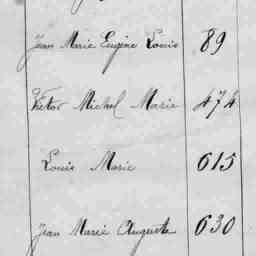 Jean Marie Eugène Louis 89
Victor Michel Marie 474
Louis Marie 615
Jean Marie Auguste 630